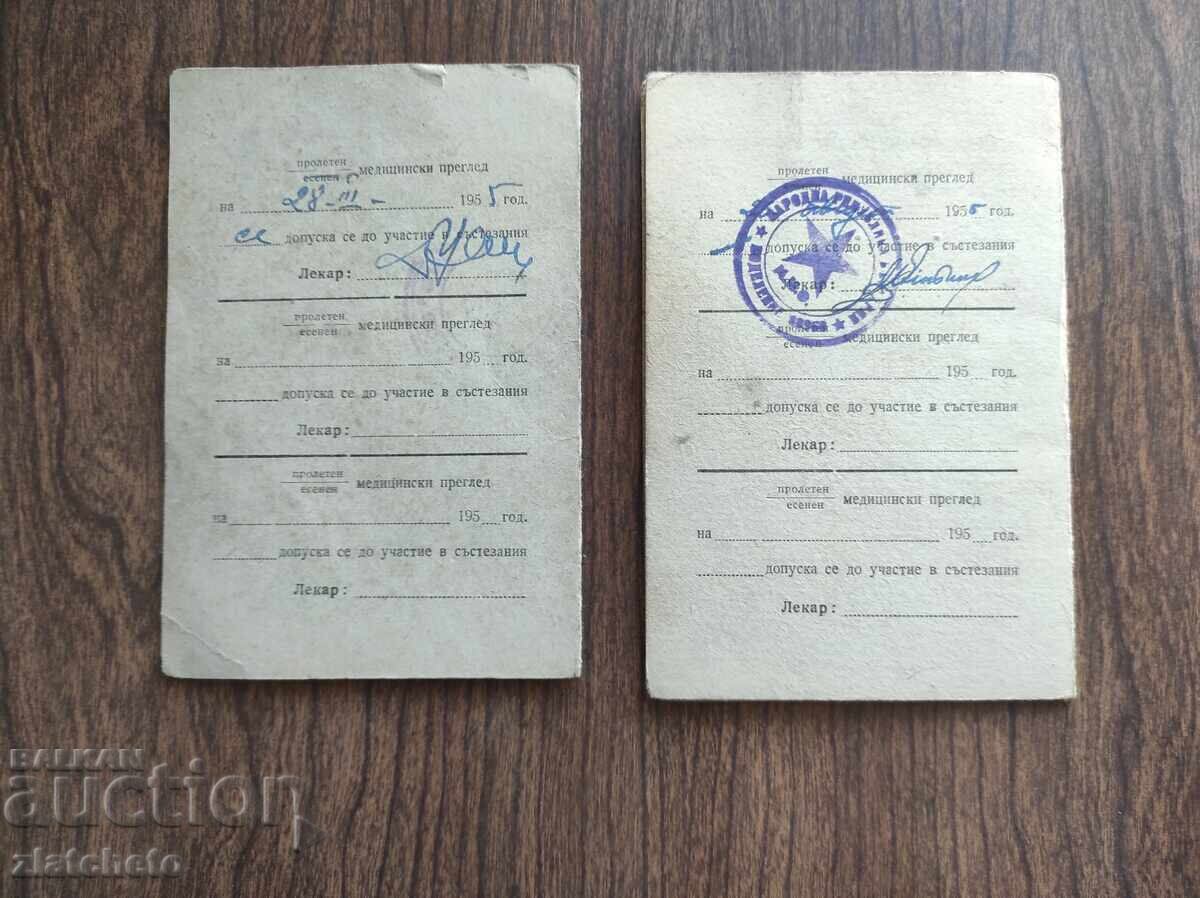 пролетен
есенен медицински преглед
на 28-III- 1955 год.
се допуска се до участие в състезания
Лекар:
пролетен
есенен медицински преглед
на 195 год.
допуска се до участие в състезания
Лекар:
пролетен
есенен медицински преглед
на 195 год.
допуска се до участие в състезания
Лекар:
пролетен
есенен медицински преглед
на 1955 год.
допуска се до участие в състезания
Лекар:
пролетен
есенен медицински преглед
на 195 год.
допуска се до участие в състезания
Лекар:
пролетен
есенен медицински преглед
на 195 год.
допуска се до участие в състезания
Лекар:
BALKAN
auction
zlatcheto